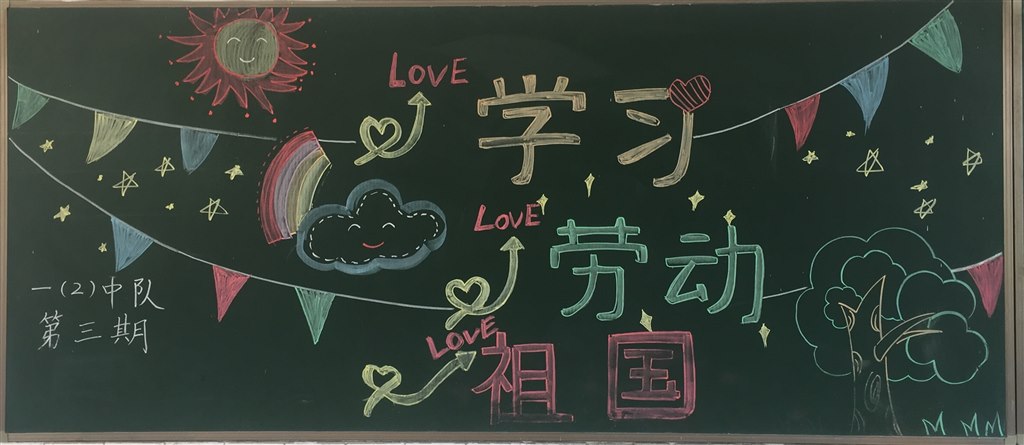 LOVE
学习
LOVE
劳动
LOVE
祖国
一(2)中队
第三期